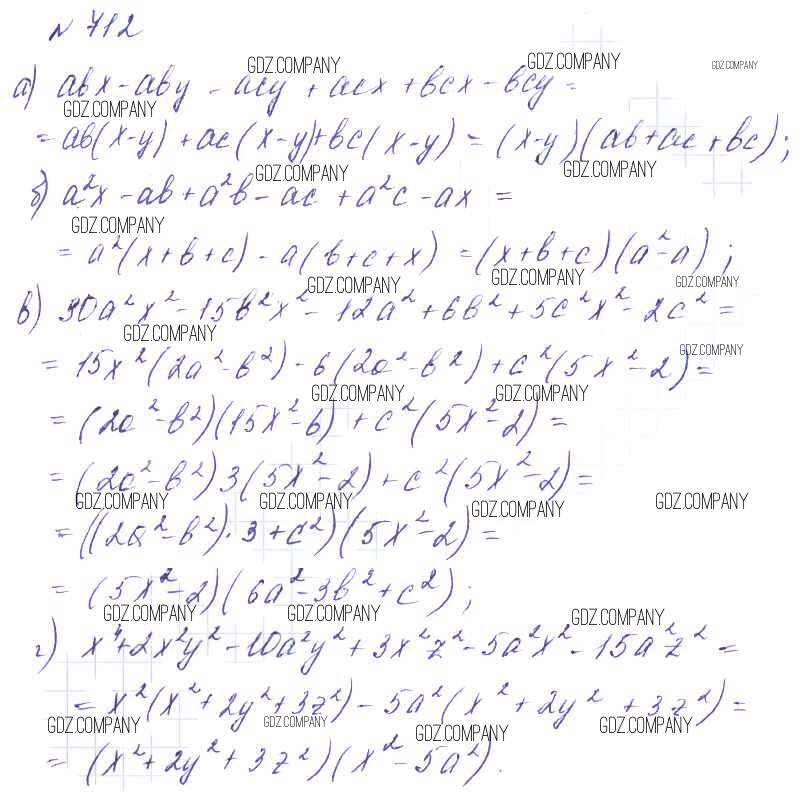 № 712
GDZ.COMPANY GDZ.COMPANY GDZ.COMPANY
а) abx - aby - acy + acx + bcx - bcy =
GDZ.COMPANY
= ab(x-y) + ac(x-y) + bc(x-y) = (x-y)(ab+ac+bc);
GDZ.COMPANY GDZ.COMPANY
б) a²x - ab + a²b - ac + a²c - ax =
GDZ.COMPANY
= a²(x+b+c) - a(b+c+x) = (x+b+c)(a²-a);
GDZ.COMPANY GDZ.COMPANY GDZ.COMPANY
в) 30a²x² - 15b²x² - 12a² + 6b² + 5c²x² - 2c² =
GDZ.COMPANY GDZ.COMPANY
= 15x²(2a²-b²) - 6(2a²-b²) + c²(5x²-2) =
GDZ.COMPANY GDZ.COMPANY
= (2a²-b²)(15x²-6) + c²(5x²-2) =
= (2a²-b²)3(5x²-2) + c²(5x²-2) =
GDZ.COMPANY GDZ.COMPANY GDZ.COMPANY GDZ.COMPANY
= ((2a²-b²)·3+c²)(5x²-2) =
= (5x²-2)(6a²-3b²+c²);
GDZ.COMPANY GDZ.COMPANY GDZ.COMPANY
г) x⁴+2x²y² - 10a²y² + 3x²z² - 5a²x² - 15a²z² =
= x²(x²+2y²+3z²) - 5a²(x²+2y²+3z²) =
GDZ.COMPANY GDZ.COMPANY GDZ.COMPANY GDZ.COMPANY
= (x²+2y²+3z²)(x²-5a²).